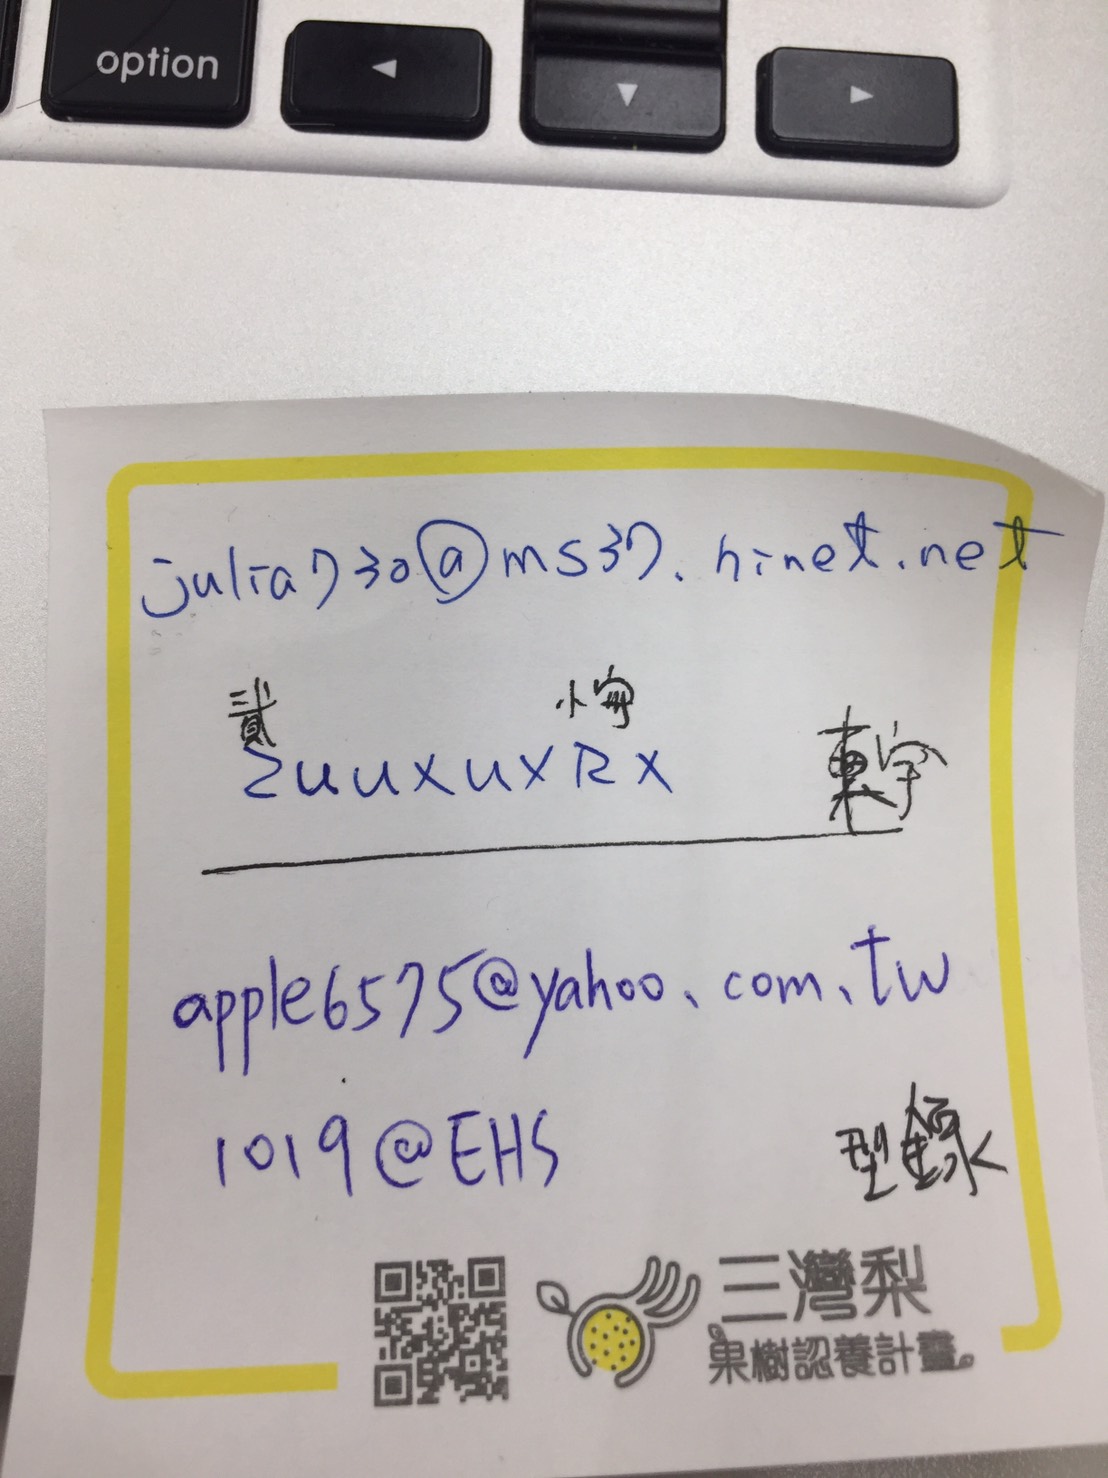 option
julia730@ms37.hinet.net
貳
小寫
2uuxuxRx
東字
apple6575@yahoo.com.tw
1019@EHS
型錄
三灣梨
果樹認養計畫